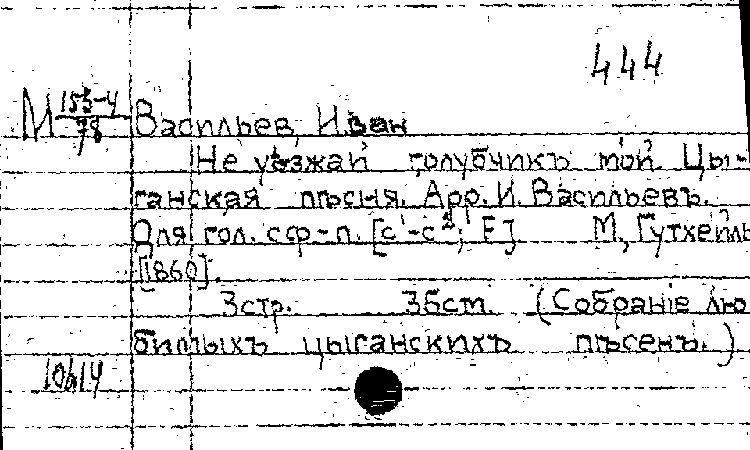 444
М 153-4/78 Васильев, Иван
Не уѣзжай голубчикъ мой. Цы-
ганская пѣсня. Арр. И. Васильевъ.
Для гол. с ф-п. [c¹-c²; F] М., Гутхейль
[1860].
3 стр. 3б ст. (Собраніе лю
бимыхъ цыганскихъ пѣсенъ.)